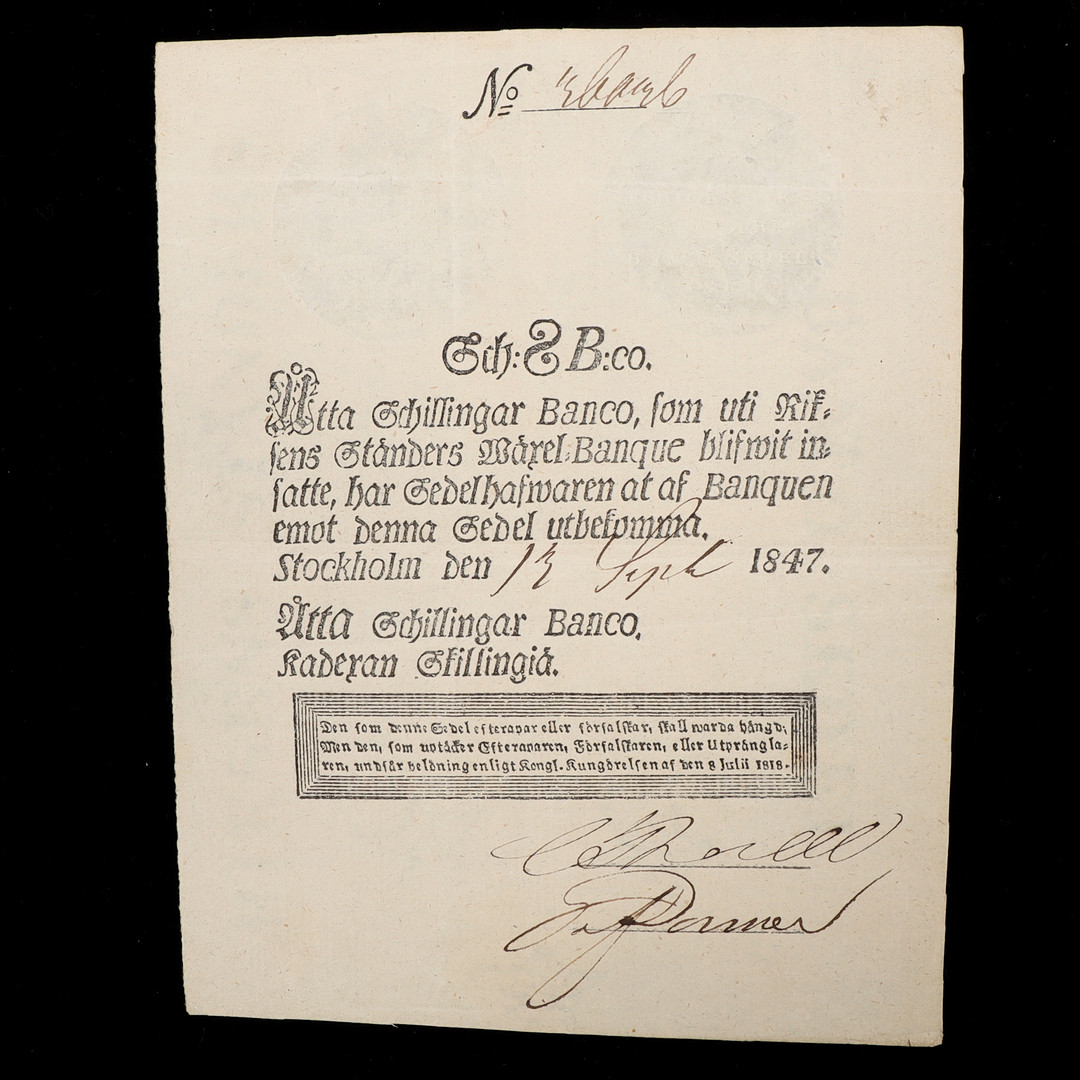 No
Sch: 8 B:co.
Åtta Schillingar Banco, som uti Rik-
sens Ständers Wäxel-Banque blifwit in-
satte, har Sedelhafwaren at af Banquen
emot denna Sedel utbekomma.
Stockholm den 13 Sept 1847.
Åtta Schillingar Banco.
Kadexan Skillingiä.
Den som denne Sedel efterapar eller förfalskar, skall warda hängd;
Men den, som uptäcker Efteraparen, Förfalskaren, eller Utprångla-
ren, undfår belöning enligt Kongl. Kungörelsen af den 8 Julii 1818.